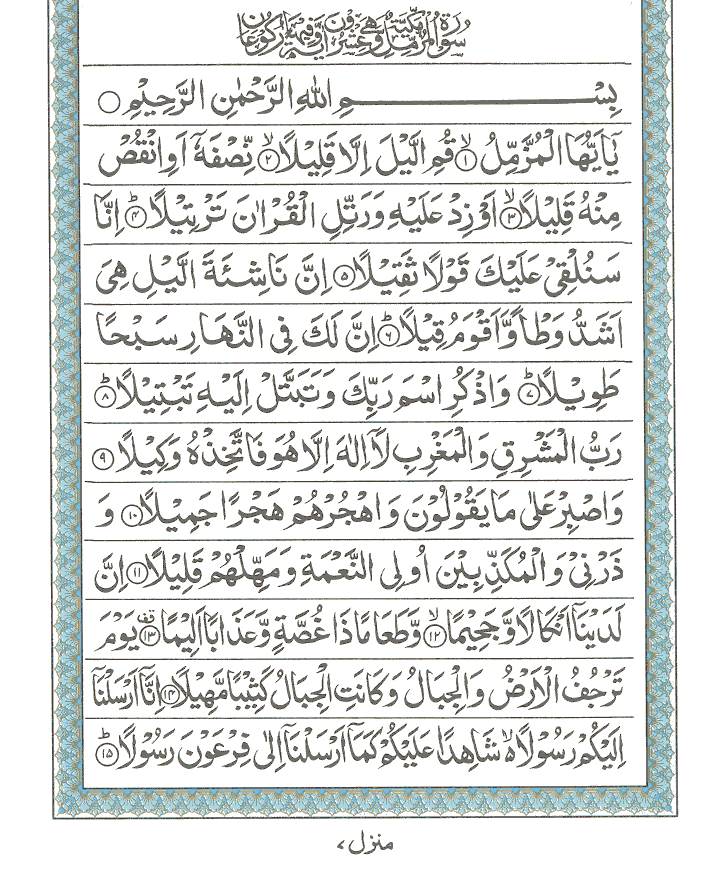 سورة المزمل مكية وهي عشرون اية وفيها ركوعان
بِسْمِ اللهِ الرَّحْمٰنِ الرَّحِيْمِ ○
يٰۤاَيُّهَا الْمُزَّمِّلُ ۙ﴿۱﴾ قُمِ الَّيْلَ اِلَّا قَلِيْلًا ۙ﴿۲﴾ نِّصْفَهٗۤ اَوِ انْقُصْ
مِنْهُ قَلِيْلًا ۙ﴿۳﴾ اَوْ زِدْ عَلَيْهِ وَرَتِّلِ الْقُرْاٰنَ تَرْتِيْلًا ؕ﴿۴﴾ اِنَّا
سَنُلْقِيْ عَلَيْكَ قَوْلًا ثَقِيْلًا ﴿۵﴾ اِنَّ نَاشِئَةَ الَّيْلِ هِيَ
اَشَدُّ وَطْاً وَّاَقْوَمُ قِيْلًا ؕ﴿۶﴾ اِنَّ لَكَ فِي النَّهَارِ سَبْحًا
طَوِيْلًا ؕ﴿۷﴾ وَاذْكُرِ اسْمَ رَبِّكَ وَتَبَتَّلْ اِلَيْهِ تَبْتِيْلًا ؕ﴿۸﴾
رَبُّ الْمَشْرِقِ وَالْمَغْرِبِ لَاۤ اِلٰهَ اِلَّا هُوَ فَاتَّخِذْهُ وَكِيْلًا ﴿۹﴾
وَاصْبِرْ عَلٰى مَا يَقُوْلُوْنَ وَاهْجُرْهُمْ هَجْرًا جَمِيْلًا ﴿۱۰﴾ وَ
ذَرْنِيْ وَالْمُكَذِّبِيْنَ اُولِي النَّعْمَةِ وَمَهِّلْهُمْ قَلِيْلًا ﴿۱۱﴾ اِنَّ
لَدَيْنَاۤ اَنْكَالًا وَّجَحِيْمًا ۙ﴿۱۲﴾ وَّطَعَامًا ذَا غُصَّةٍ وَّعَذَابًا اَلِيْمًا ۗ﴿۱۳﴾ يَوْمَ
تَرْجُفُ الْاَرْضُ وَالْجِبَالُ وَكَانَتِ الْجِبَالُ كَثِيْبًا مَّهِيْلًا ﴿۱۴﴾ اِنَّاۤ اَرْسَلْنَاۤ
اِلَيْكُمْ رَسُوْلًا ۙ۬ شَاهِدًا عَلَيْكُمْ كَمَاۤ اَرْسَلْنَاۤ اِلٰى فِرْعَوْنَ رَسُوْلًا ؕ﴿۱۵﴾
منزل ۷